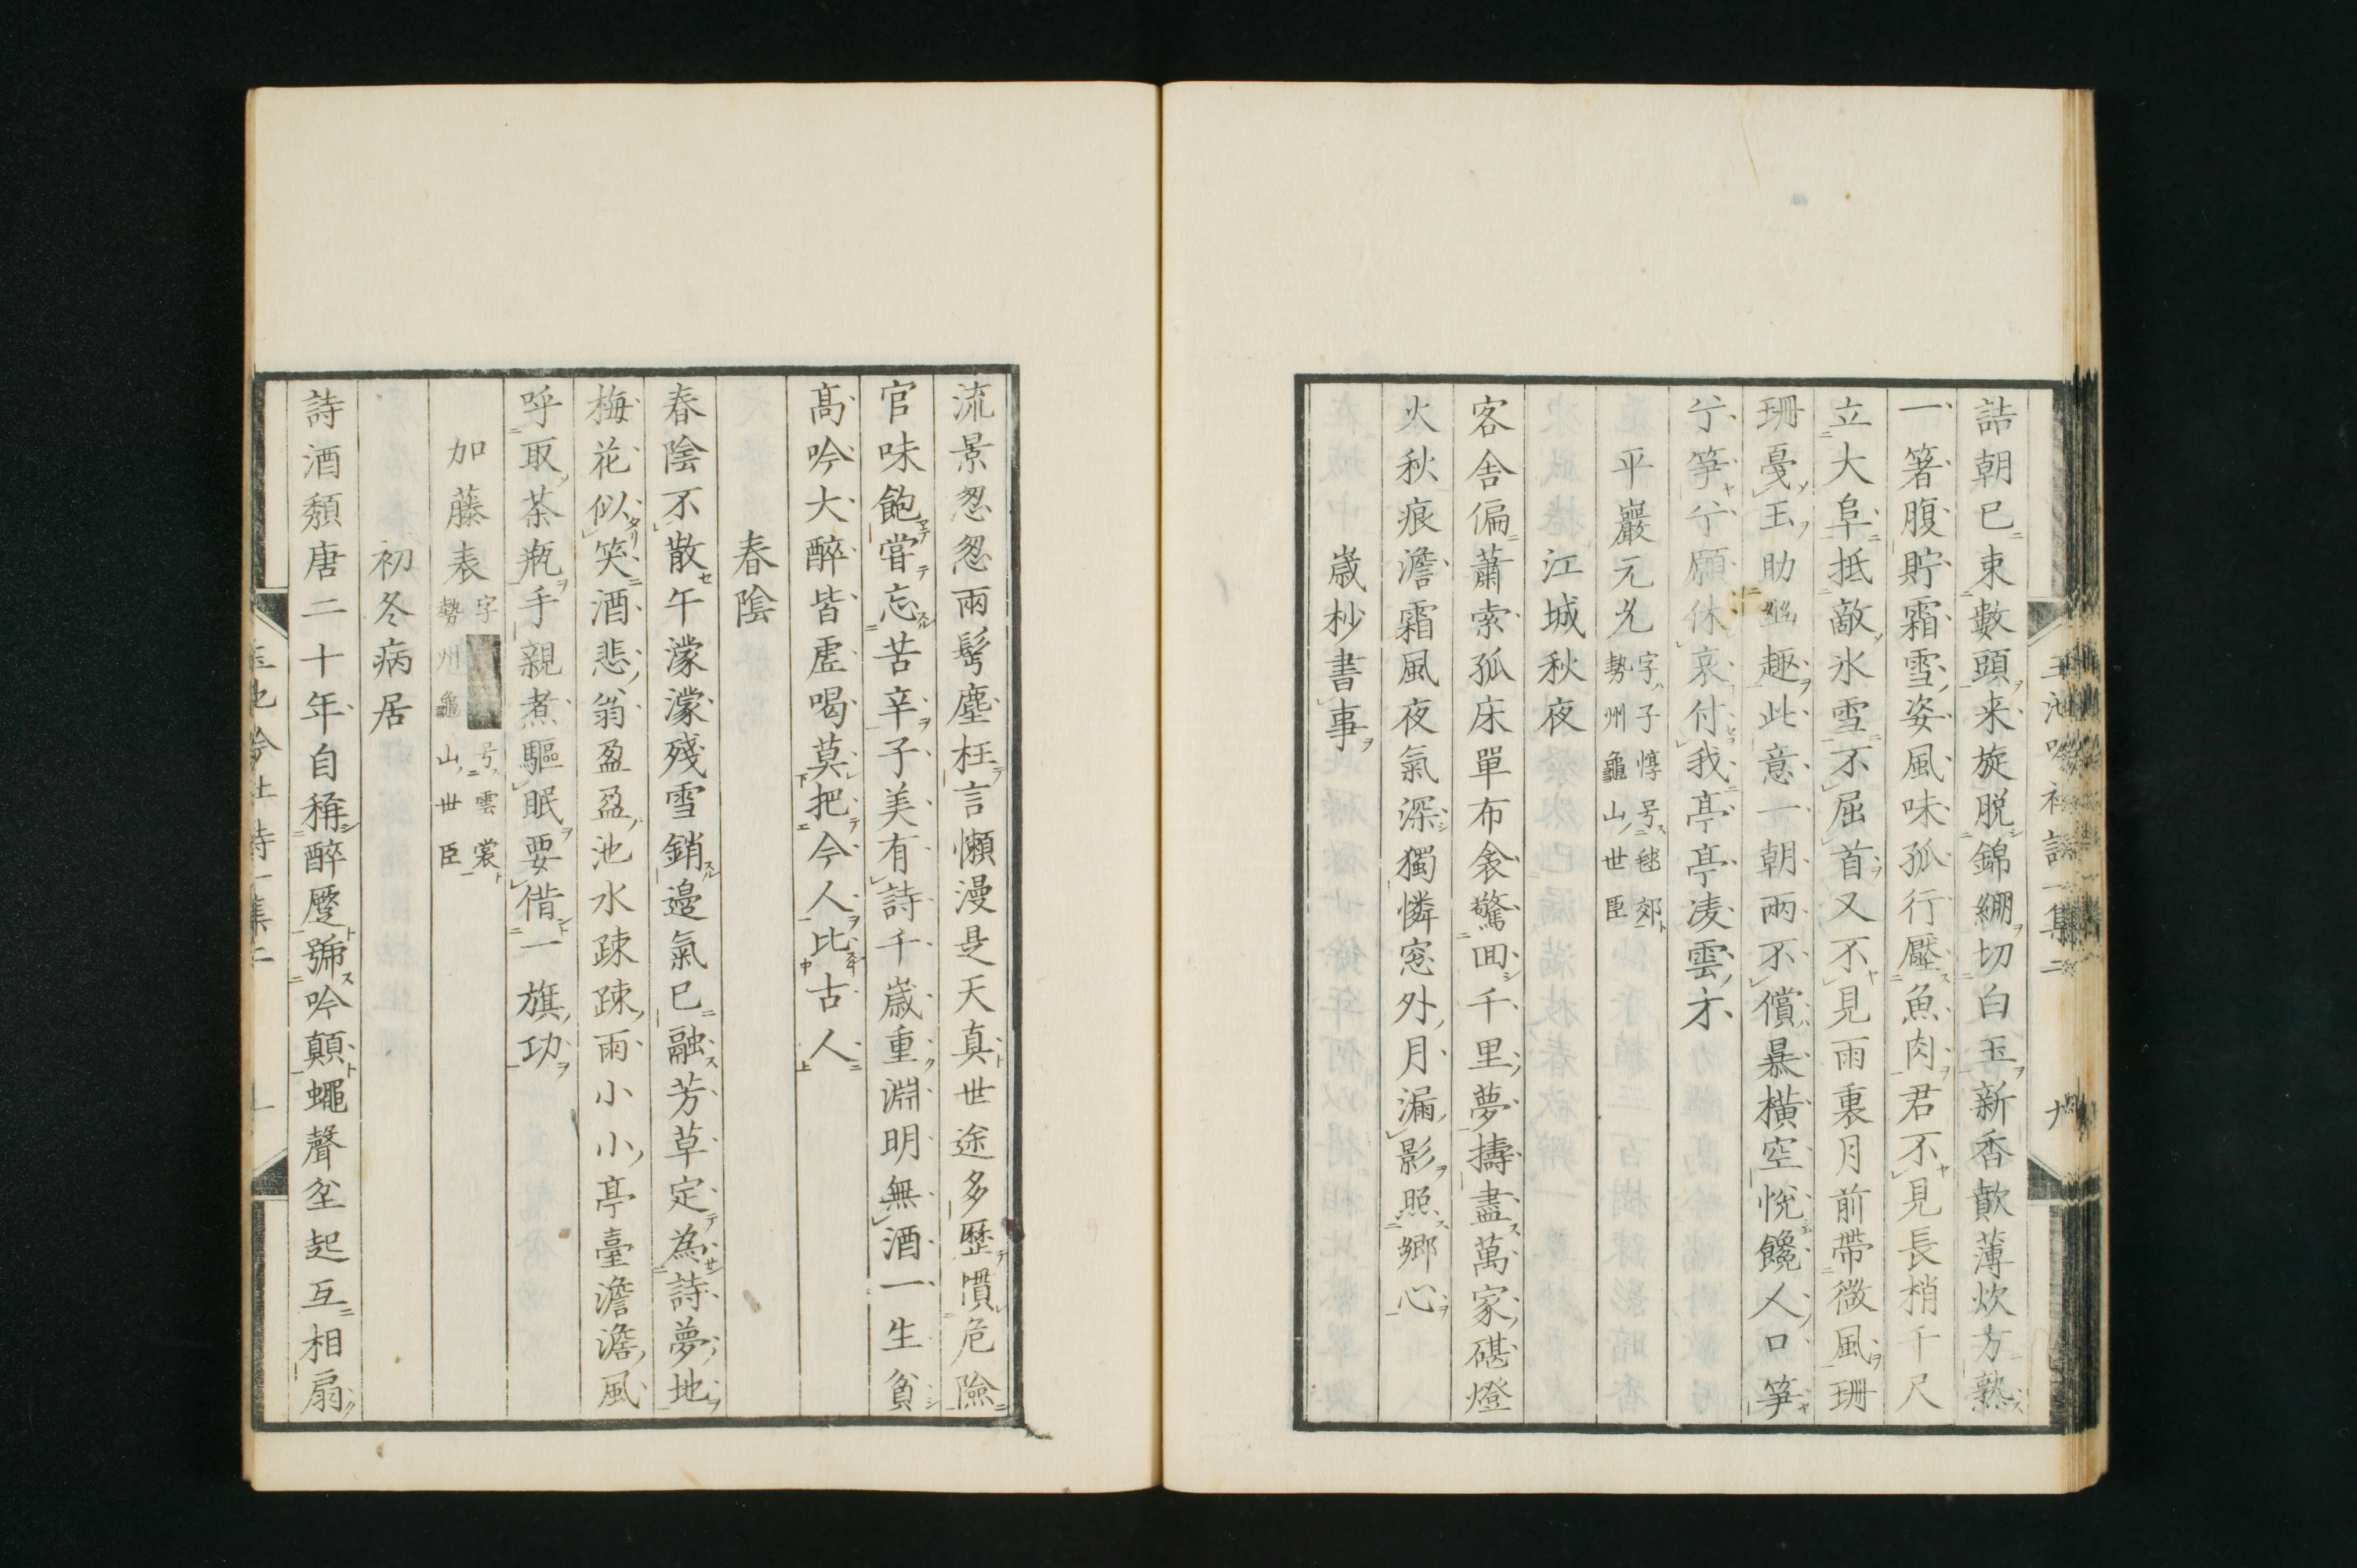 詰朝已東數頭来旋脱錦綳切白玉新香歕薄炊方熟
一箸腹貯霜雪姿風味孤行壓魚肉君不見長梢千尺
立大阜抵敵氷雪不屈首又不見雨裏月前帶微風珊
珊戞玉助幽趣此意一朝兩不償暴橫空悅饞人口笋
兮笋兮願休哀付我亭亭凌雲才
平巖元兊 字子惇号毬郊
勢州龜山世臣
江城秋夜
客舎偏蕭索孤床單布衾驚回千里夢擣盡萬家碪燈
火秋痕澹霜風夜氣深獨憐窓外月漏影照郷心
嵗杪書事
流景怱怱兩鬂塵枉言懶漫是天真世途多歴慣危險
官味飽甞忘苦辛子美有詩千嵗重淵明無酒一生貧
髙吟大醉皆虚喝莫把今人比古人
春陰
春陰不散午濛濛殘雪銷邉氣已融芳草定為詩夢地
梅花似笑酒悲翁盈盈池水踈踈雨小小亭臺澹澹風
呼取茶瓶手親煮驅眠要借一旗功
加藤表 字 号雲裳
勢州龜山世臣
初冬病居
詩酒頽唐二十年自稱醉蹷號吟顛蠅聲坌起互相扇